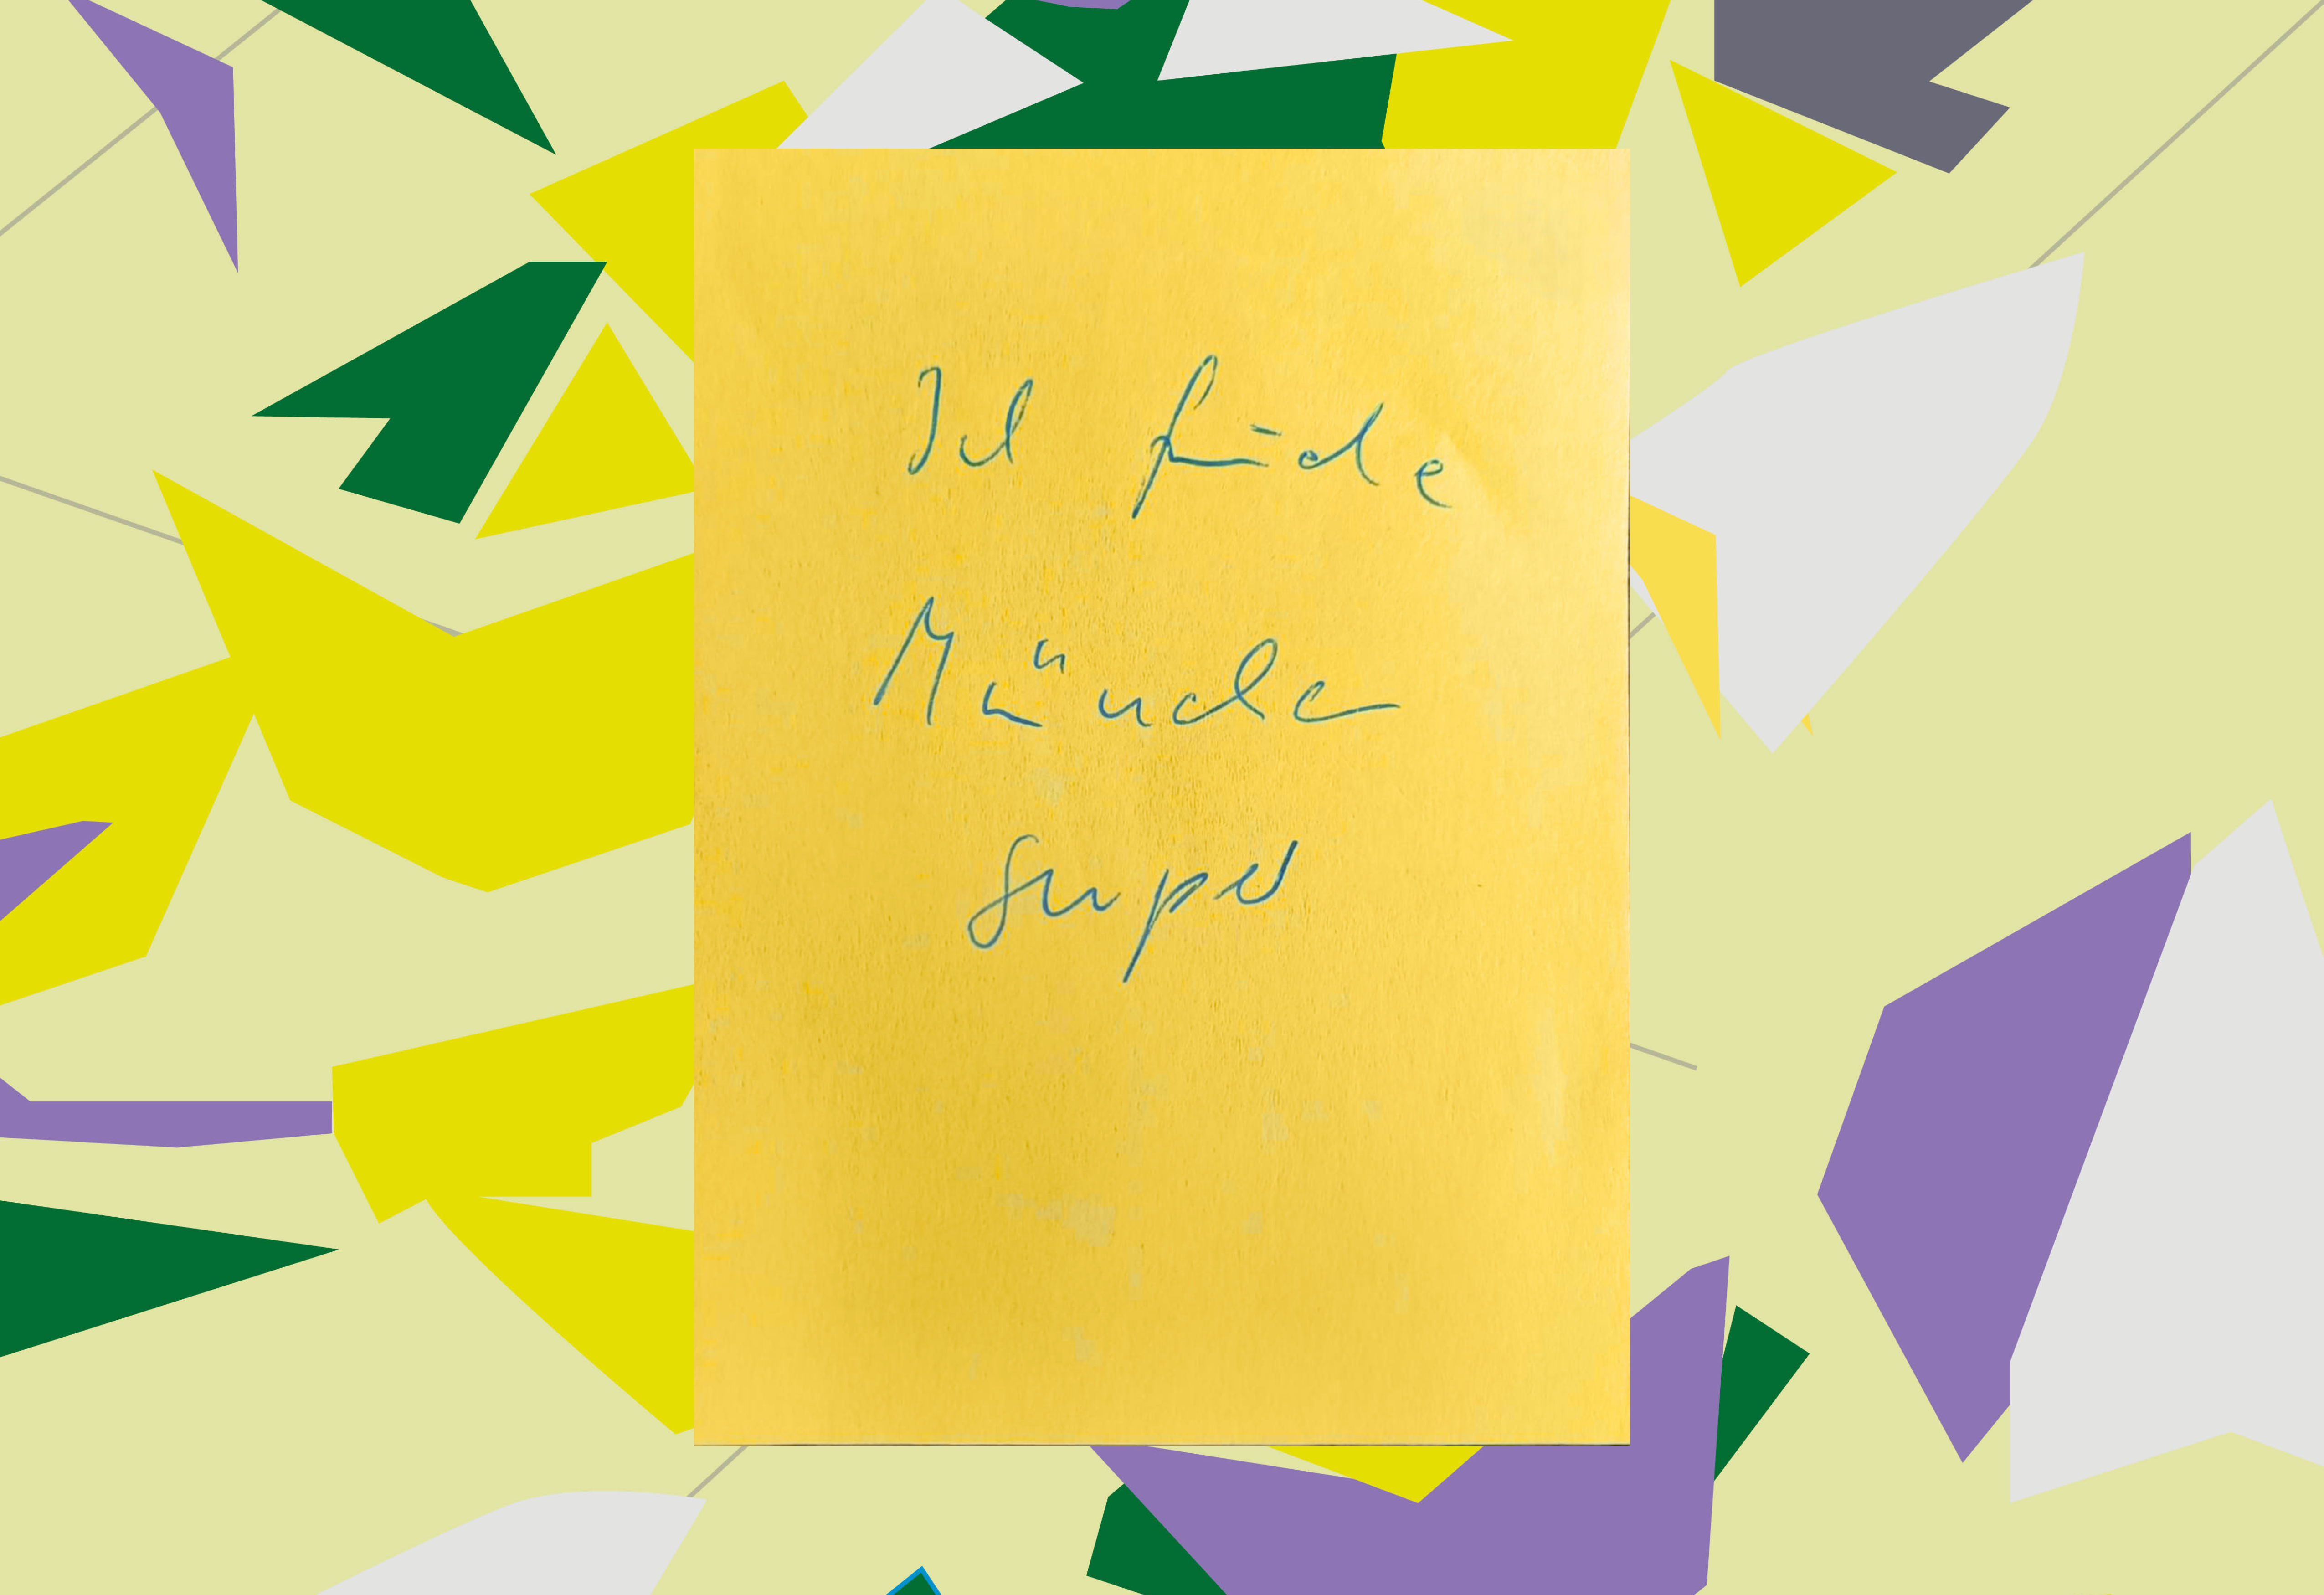 Ich finde
München
super